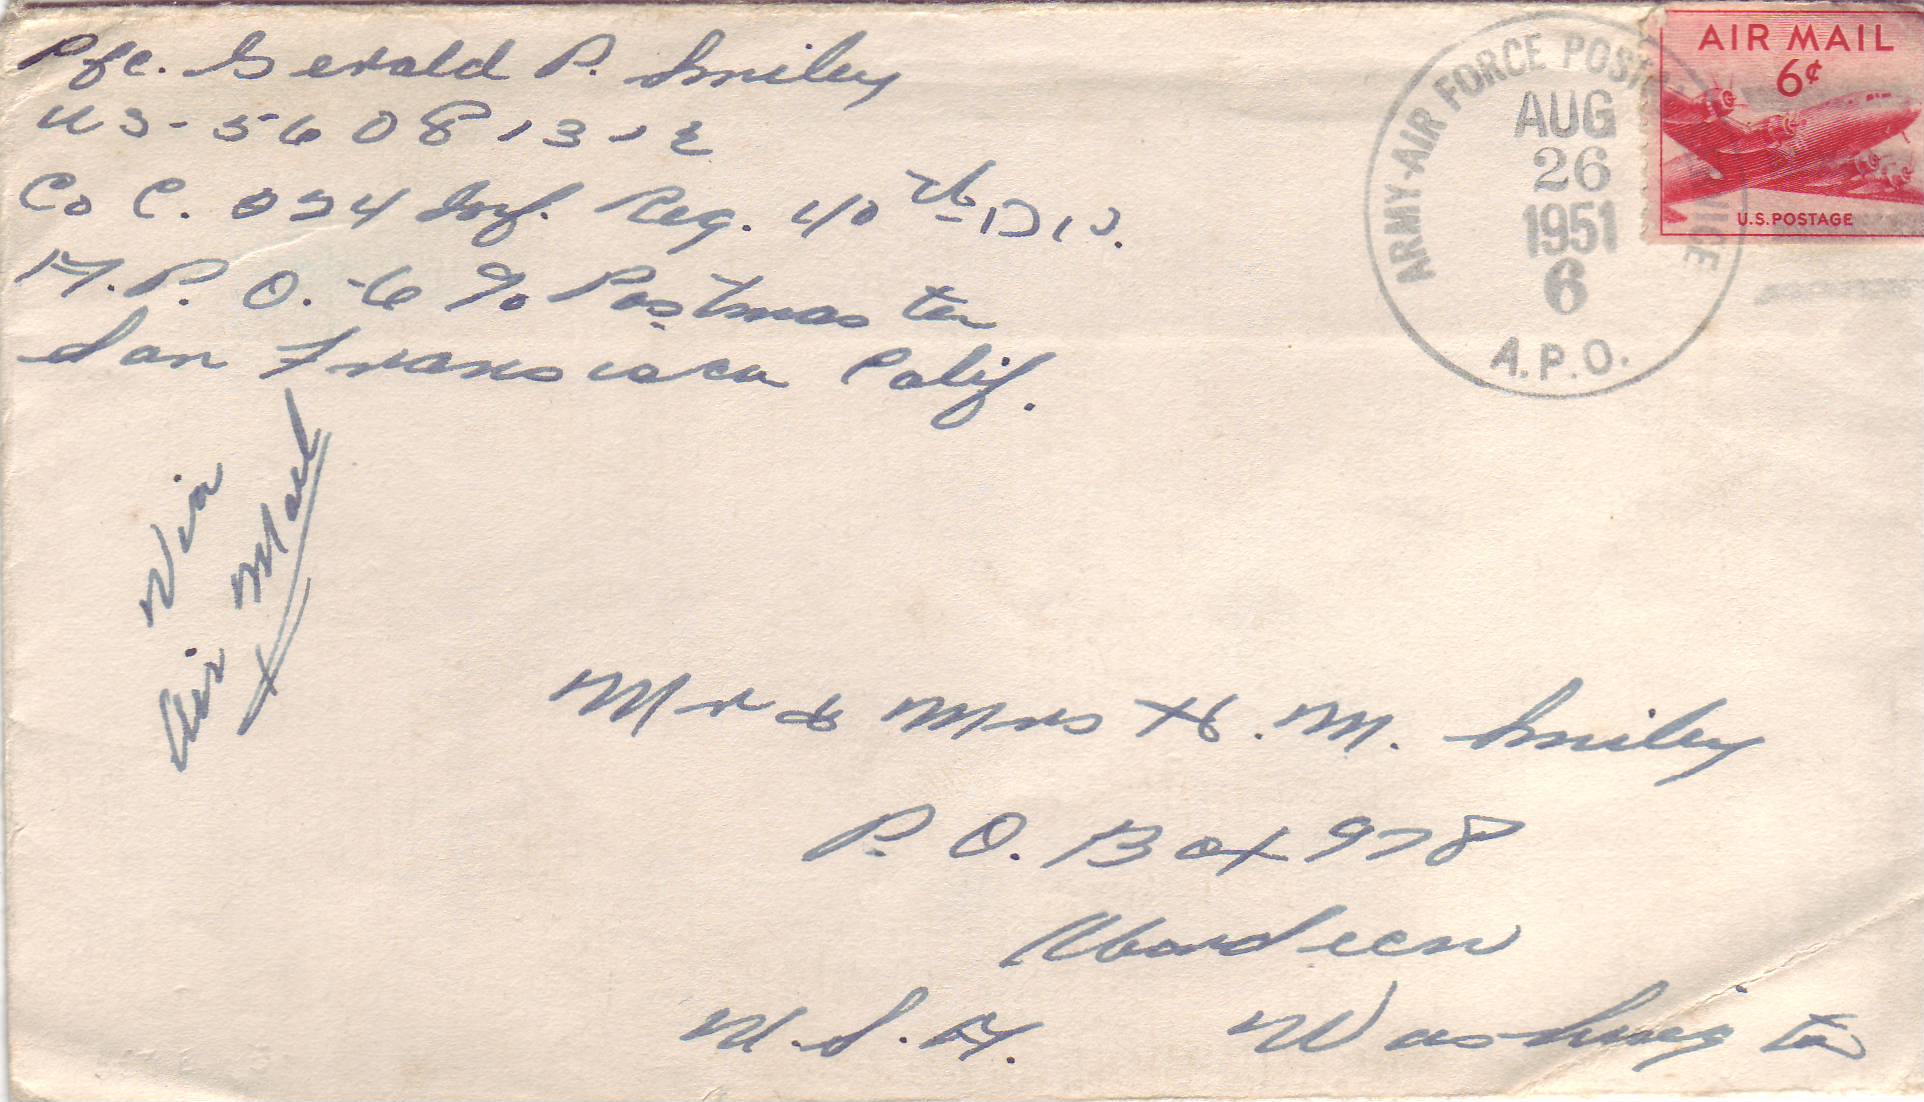 Pfc. Gerald P. Smiley
US-56081312
Co C. 224 Inf. Reg. 40th Div.
A.P.O. -6 % Postmaster
San Francisco Calif.
Via
Air Mail
ARMY-AIR FORCE POSTAL SERVICE
AUG
26
1951
6
A.P.O.
AIR MAIL
6¢
U.S. POSTAGE
Mr & Mrs H. M. Smiley
P. O. Box 978
Aberdeen
U.S.A. Washington